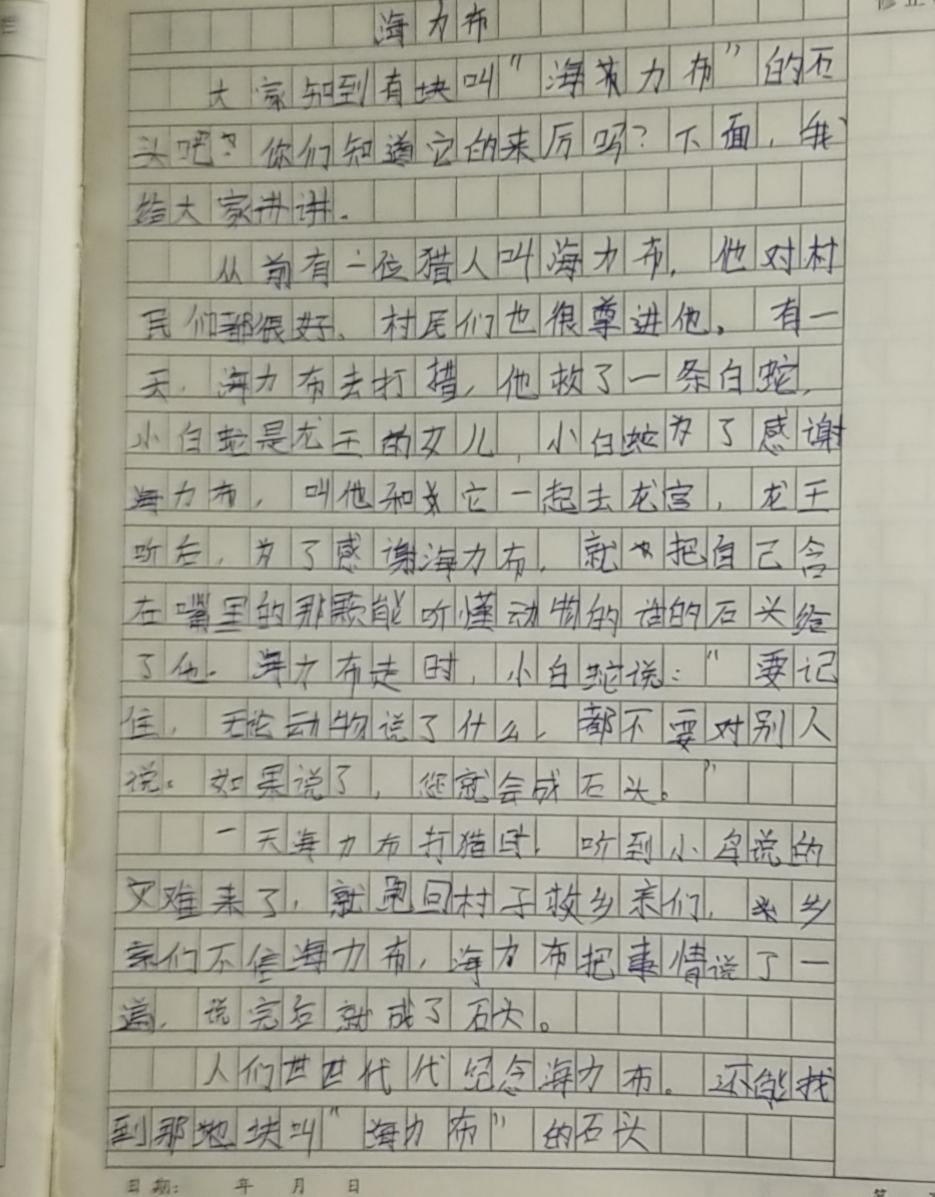 海力布
大家知到有块叫“海力布”的石
头吧？你们知道它的来历吗？下面，我
给大家讲讲.
从前有一位猎人叫海力布，他对村
民们都很好、村民们也很尊进他。有一
天，海力布去打猎，他救了一条白蛇，
小白蛇是龙王的女儿，小白蛇为了感谢
海力布，叫他和它一起去龙宫，龙王
听后，为了感谢海力布，就把自己含
在嘴里的那颗能听懂动物的话的石头给
了他。海力布走时，小白蛇说：“要记
住，无论动物说了什么，都不要对别人
说。如果说了，您就会成石头。”
一天海力布打猎时，听到小鸟说的
灾难来了，就跑回村子救乡亲们，乡
亲们不信海力布，海力布把事情说了一
遍，说完后就成了石头。
人们世世代代纪念海力布。还能找
到那块叫“海力布”的石头
日期： 年 月 日